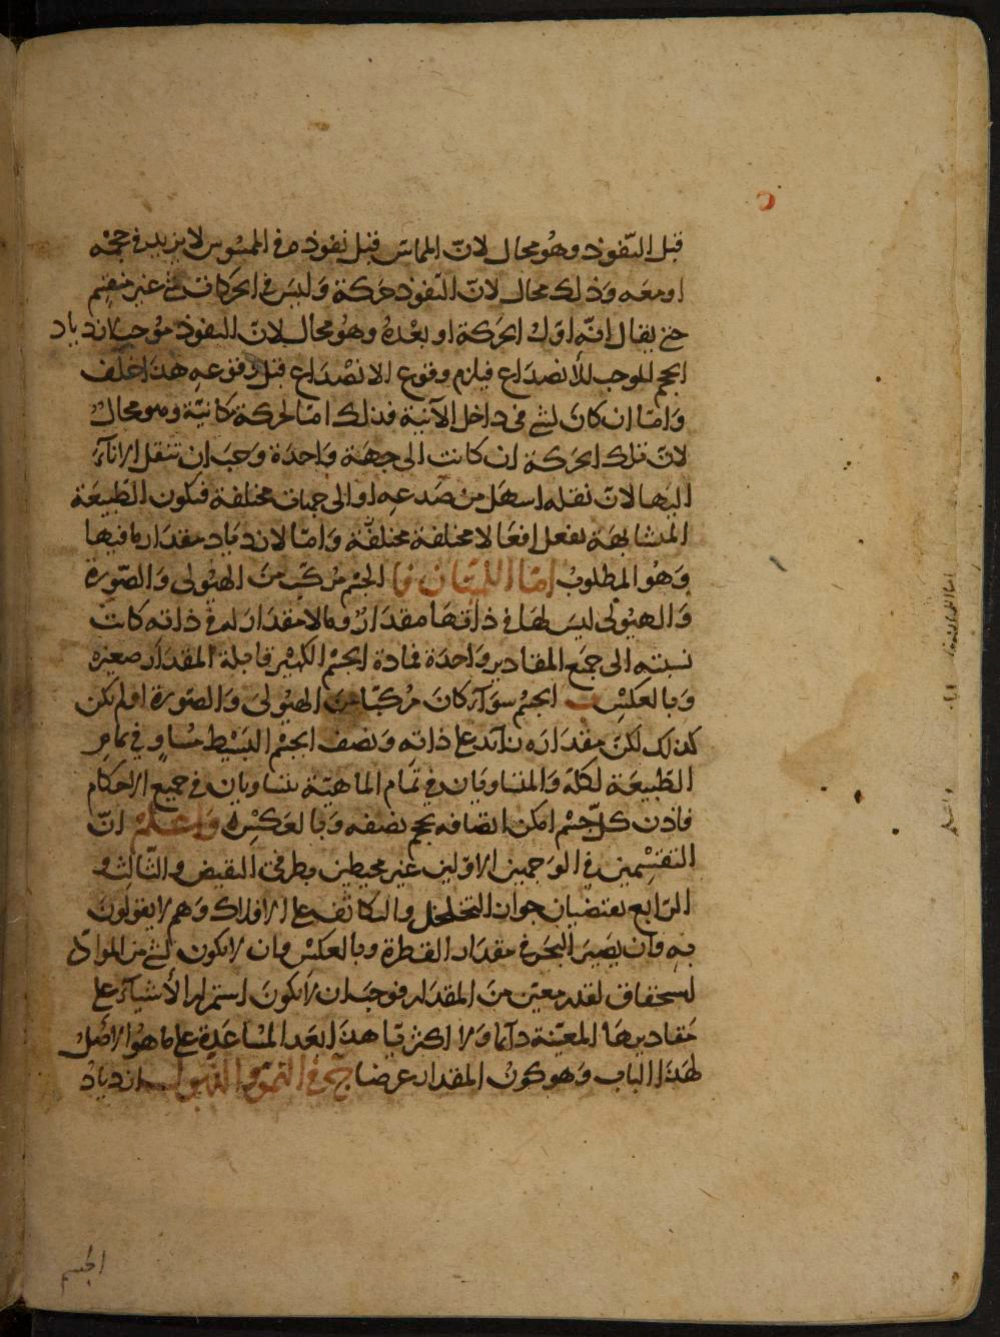 قبل النفوذ وهو محال لان المماس قبل نفوذه في الممسوس لا يزيد في حجمه
او معه وذلك محال لان النفوذ حركة وليس في الحركات شئ غير منقسم
حتى يقال انه اول الحركة او بعده وهو محال لان النفوذ موجب لازدياد
الحجم الموجب للانصداع فيلزم وقوع الانصداع قبل وقوعه هذا خلف
واما ان كان لشئ في داخل الآنية فذلك اما لحركة مكانية وهو محال
لان تلك الحركة ان كانت الى جهة واحدة وجب ان تنقل الاناء
اليها لان نقله اسهل من صدعه او الى جهات مختلفة فيكون الطبيعة
المتشابهة تفعل افعالا مختلفة مختلفة واما لازدياد مقدار ما فيها
وهو المطلوب اما اللميتان فا الجسم مركب من الهيولى والصورة
والهيولى ليس لها في ذاتها مقدار وما لا مقدار له في ذاته كانت
نسبته الى جميع المقادير واحدة فمادة الجسم الكبير قابلة المقدار صغيره
وبالعكس ب الجسم سواء كان مركبا من الهيولى والصورة او لم يكن
كذلك لكن مقداره زائد على ذاته ونصف الجسم البسيط مساو في تمام
الطبيعة لكله والمتساويان في تمام الماهية يتساويان في جميع الاحكام
فاذن كل جسم امكن اتصافه بحجم نصفه وبالعكس واعلم ان
التقسيمين في الوجهين الاولين غير محيطين بطرفي النقيض والثالث و
الرابع يقتضيان جواز التخلخل والتكاثف على الافلاك وهم لا يقولون
به وان يصير البحر في مقدار القطرة وبالعكس وان لا يكون لشئ من المواد
استحقاق لقدر معين من المقدار فوجب ان لا يكون استمرار الأشياء على
مقاديرها المعينة دائما ولا اكثريا هذا بعد المساعدة على ما هو الاصل
لهذا الباب وهو كون المقدار عرضا ج في النمو والذبول ازدياد
الجسم